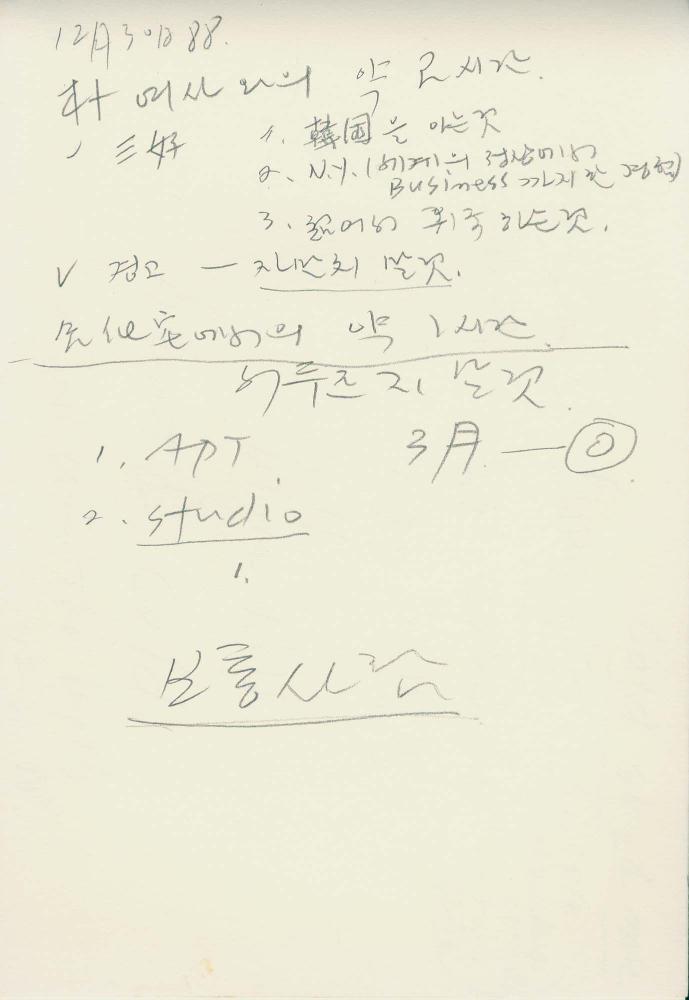 12月30日 88.
朴 여사 와의 약 2시간.
、三好 1. 韓国을 아는것
2. N.Y. (세계의 정상에서
Business 까지 한 경험)
3. 젊어서 귀국 하는것.
V 경고 — 자만치 말것.
에서의 약 1시간.
서두르지 말것.
1. APT 3月 —
2. studio
1.
보통사람